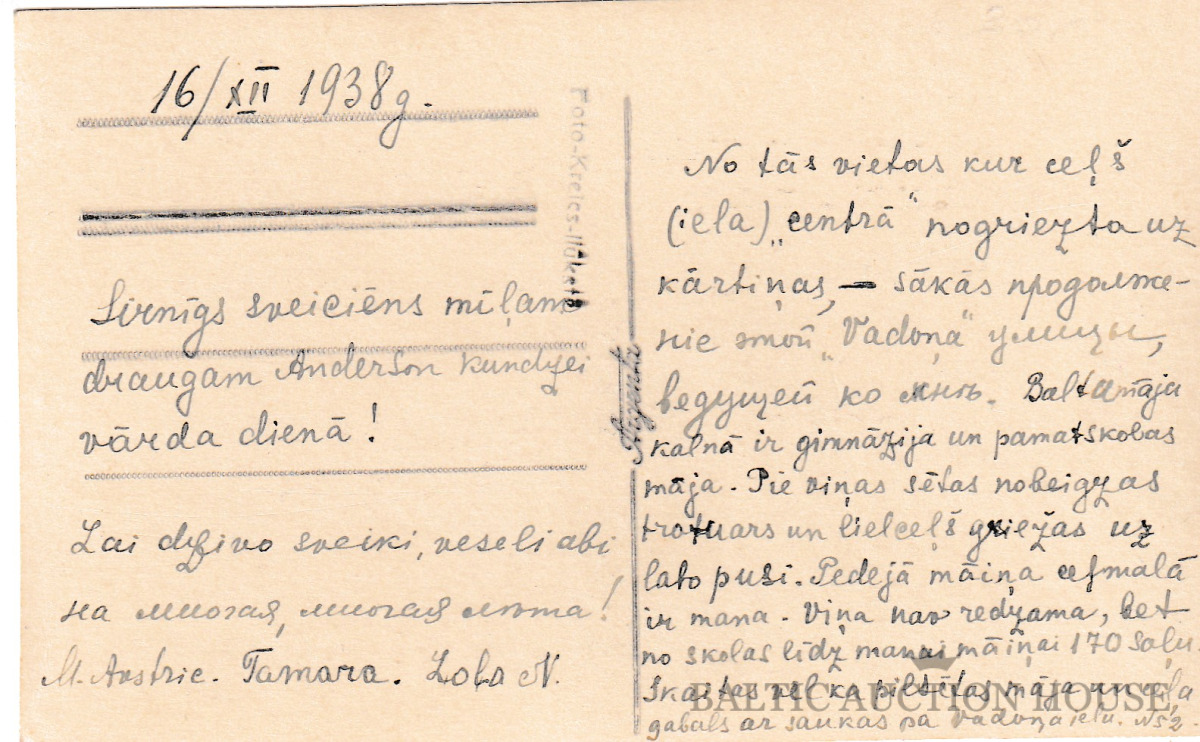 16/XII 1938g.
Sirnīgs sveiciēns mīļam
draugam Anderson kundzei
vārda dienā!
Lai dzīvo sveiki, veseli abi
на многая, многая лѣта!
M. Austrie. Tamara. Lola N.
Foto-Kreics-Ilūkstē
No tās vietas kur ceļš
(iela) „centrā“ nogriezta uz
kārtiņas, — sākās продолже-
ние этой „Vadoņa“ улицы,
ведущей ко мнѣ. Baltamāja
kalnā ir gimnāzija un pamatskolas
māja. Pie viņas sētas nobeigzas
trotuars un lielceļš griežas uz
labo pusi. Pedejā māiņa ceļmalā
ir mana. Viņa nav redzama, bet
no skolas līdz manai māiņai 170 soļu.
Skaitas vēl kā pilsētas māja un ceļa
gabals ar saukas pa Vadoņa ielu. №52.
BALTIC AUCTION HOUSE